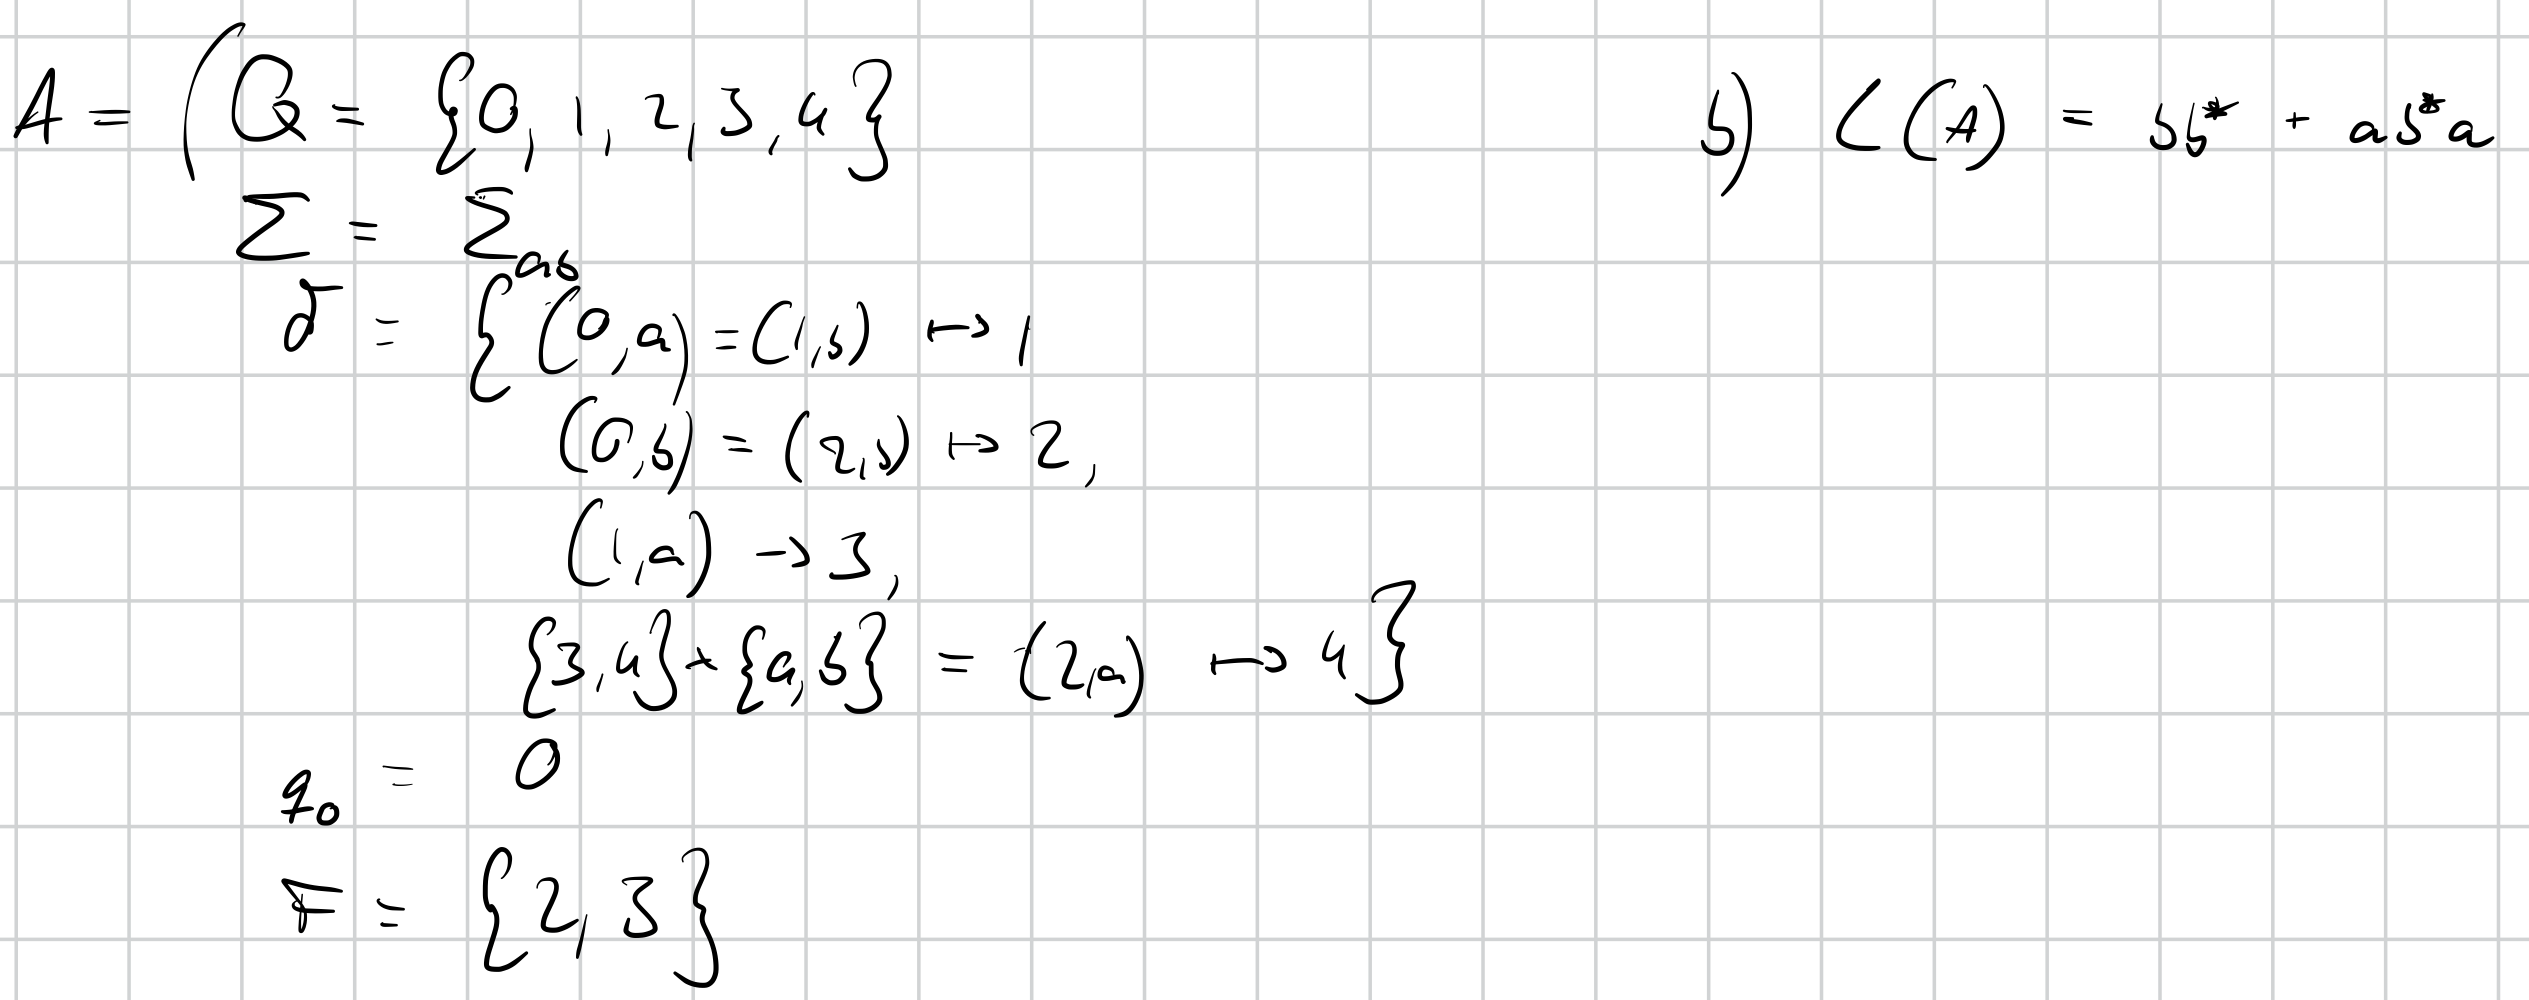 A = (Q = {0, 1, 2, 3, 4}
Σ = Σ_ab
δ = {(0,a) = (1,b) ↦ 1
(0,b) = (2,b) ↦ 2,
(1,a) → 3,
{3,4} × {a,b} = (2,a) ↦ 4}
q₀ = 0
F = {2,3}
b) L(A) = bb* + ab*a